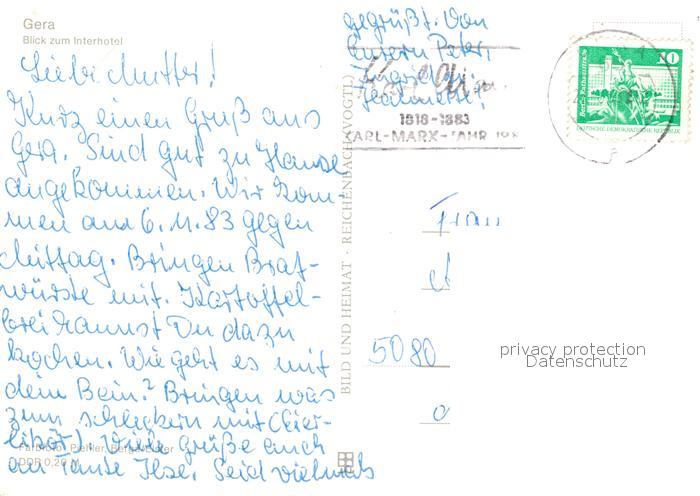 Gera
Blick zum Interhotel
Liebe Mutter!
Kurz einen Gruß aus
Gera. Sind gut zu Hause
angekommen. Wir kom-
men am 6.11.83 gegen
Mittag. Bringen Brat-
würste mit. Kartoffel-
brei kannst Du dazu
kochen. Wie geht es mit
dem Bein? Bringen was
zum schleckern mit (Eier-
likör). Viele Grüße auch
an Tante Ilse. Seid vielmals
gegrüßt. Von
Euern Peter,
Farbfoto: Piehler, Berga/Elster
DDR 0,20 M
BILD UND HEIMAT · REICHENBACH (VOGTL)
1818-1883
KARL-MARX-JAHR 198
10
DEUTSCHE DEMOKRATISCHE REPUBLIK
Frau
5080
privacy protection
Datenschutz